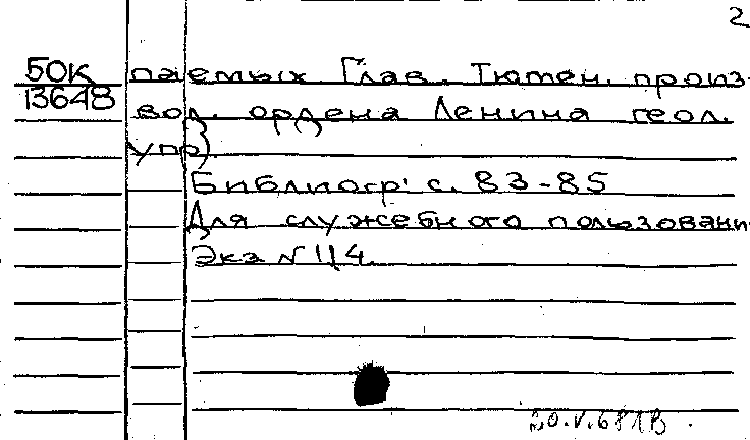 2
50К паемых Глав. Тюмен. произ-
13648 вод. ордена Ленина геол.
упр)
Библиогр: с. 83-85
Для служебного пользовани
Экз № 114
20.V.68